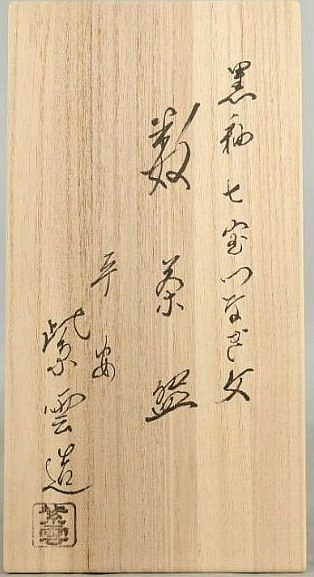 黒釉七宝つなぎ文
数茶盌
平安
紫雲造
紫雲